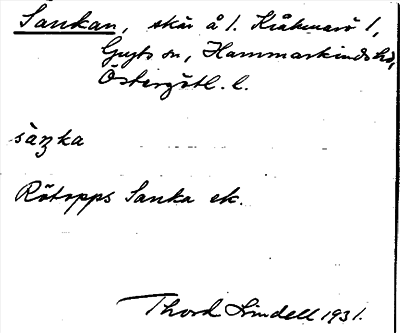 Sankan, skär å 1. Kråkmarö 1,
Gryts sn, Hammarkinds hd,
Östergötl. l.
sàŋka
Rötopps Sanka ek.
Thord Lindell 1931.